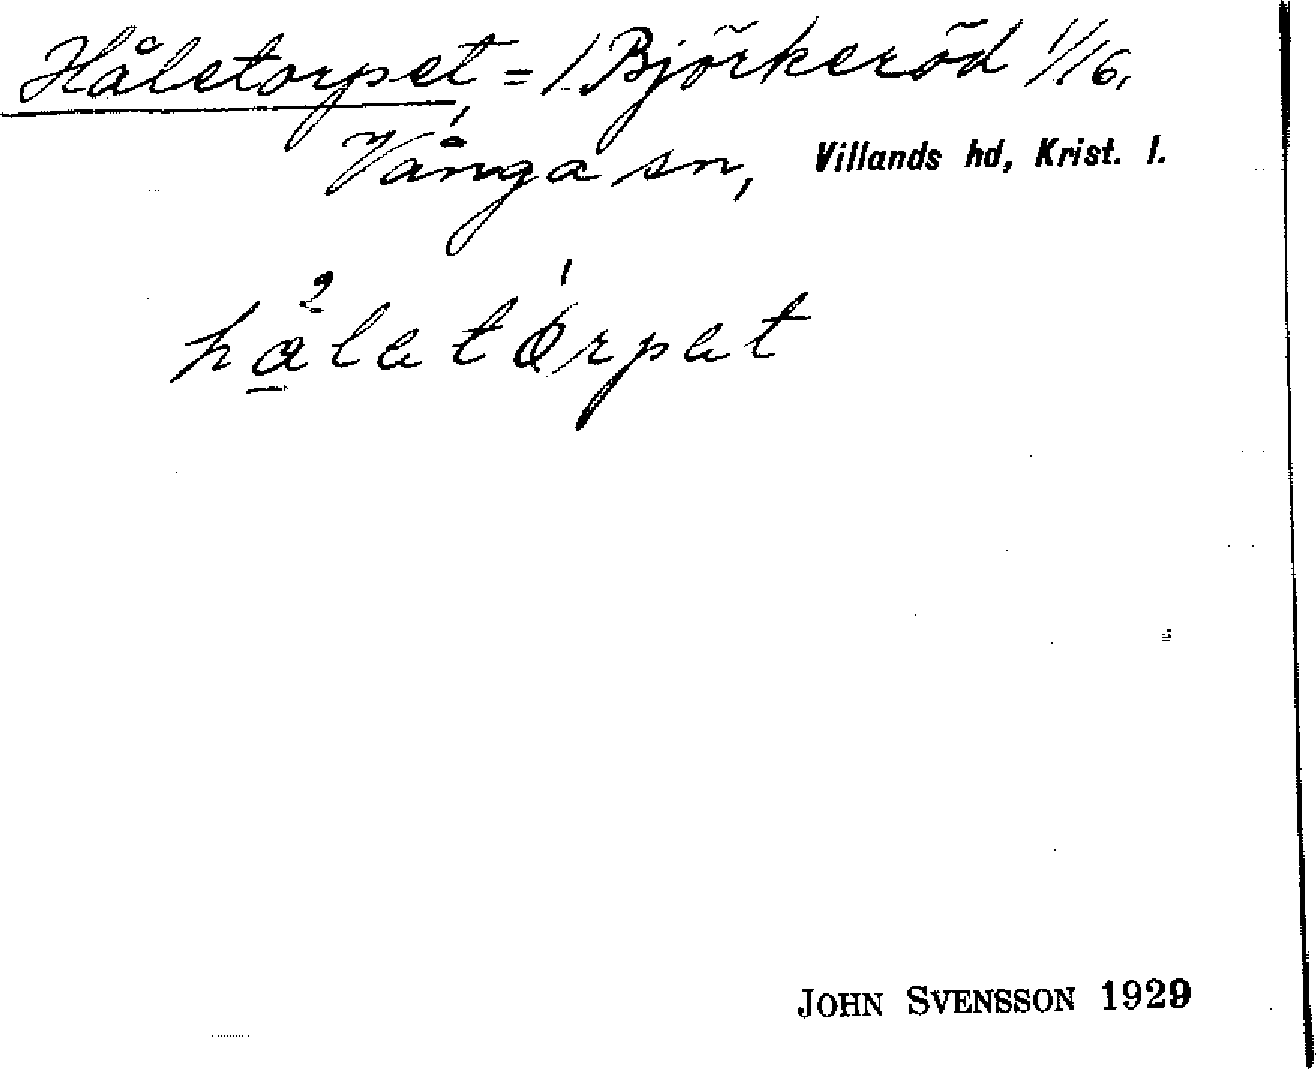 Håletorpet = 1 Björkeröd 1/16,
Vånga sn, Villands hd, Krist. l.
håletørpet
JOHN SVENSSON 1929